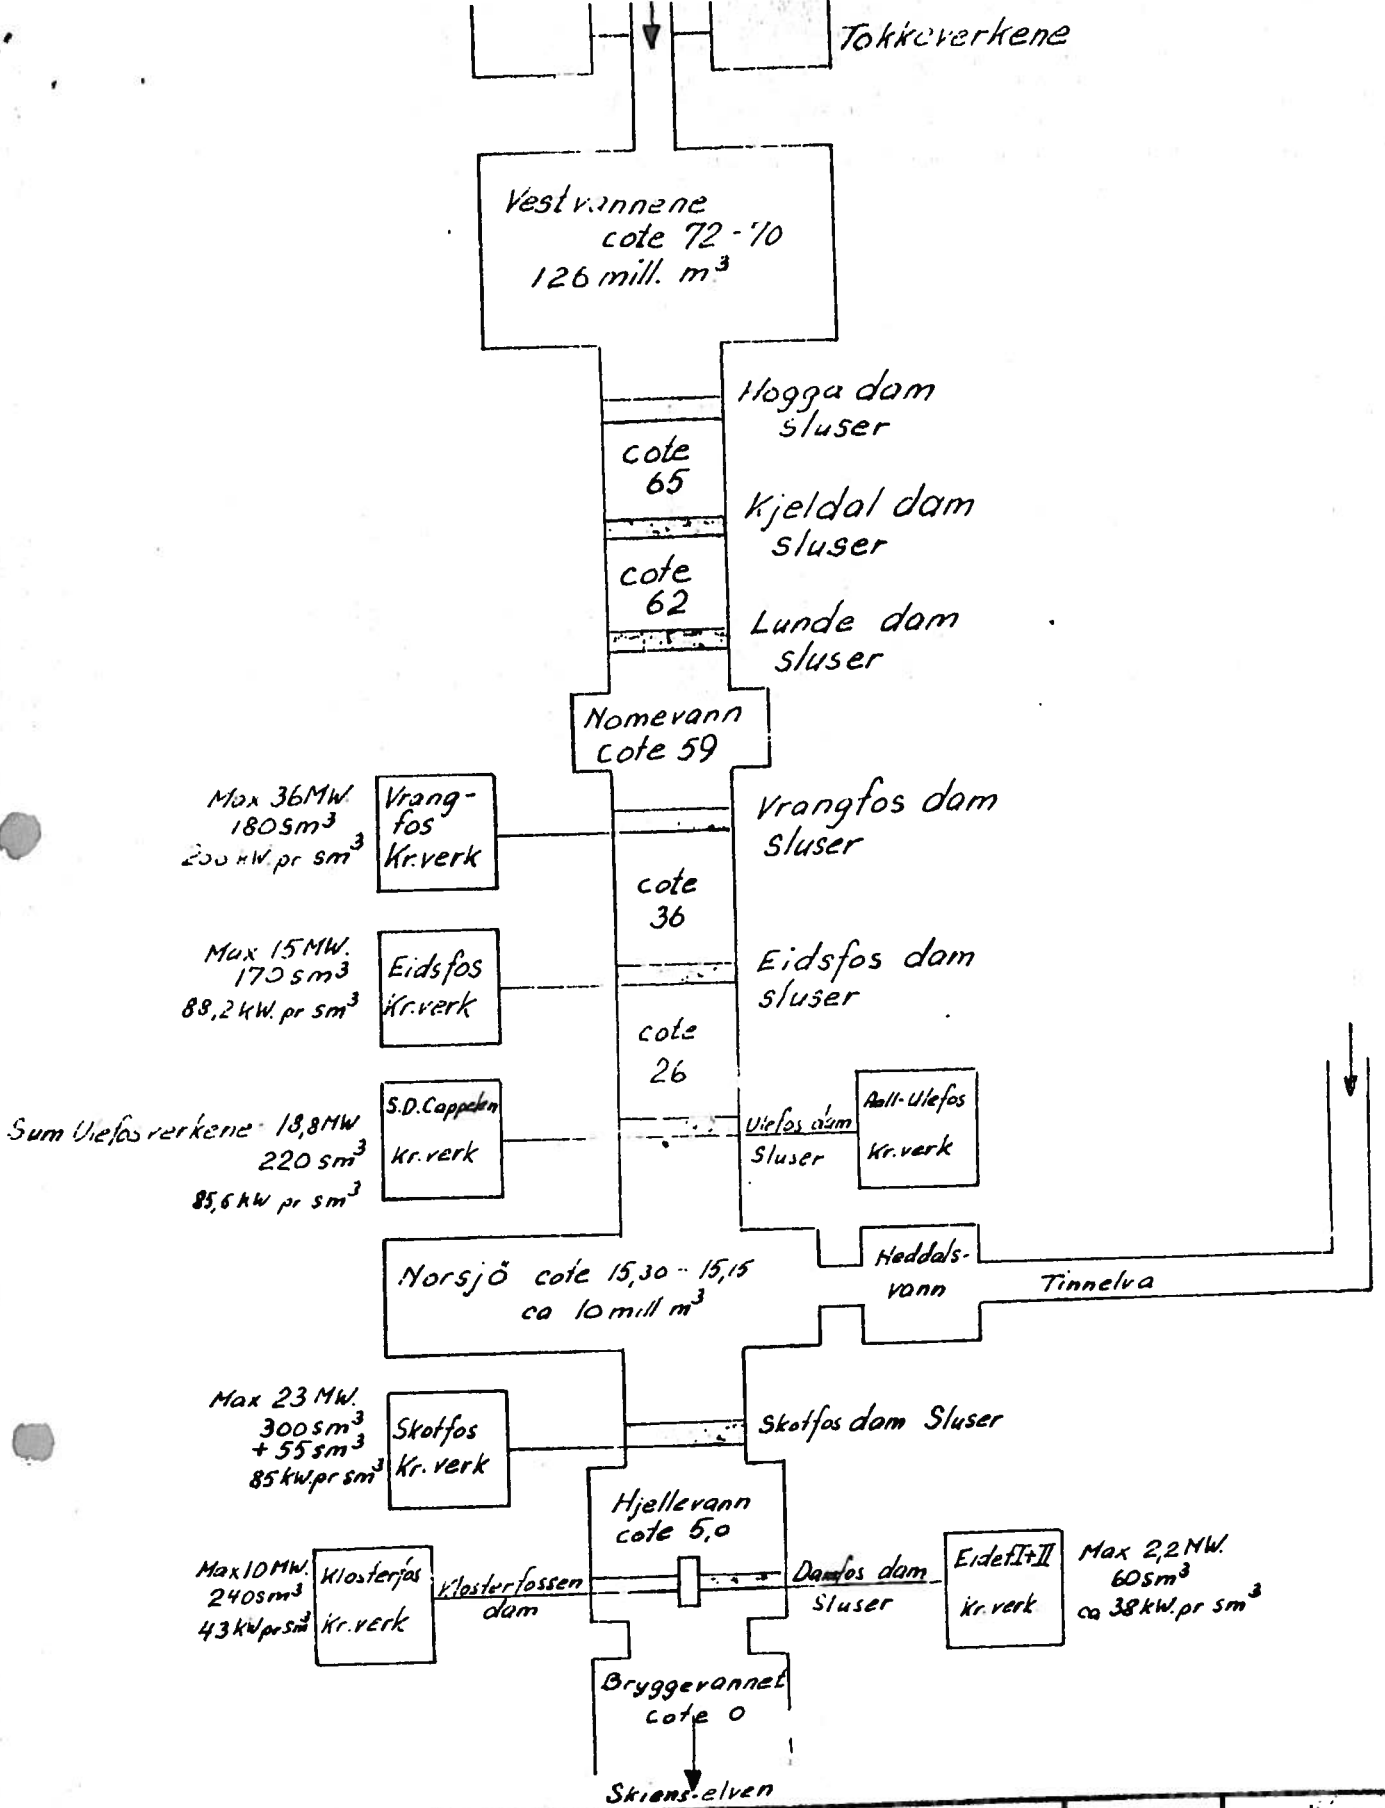 Tokkeverkene
Vestvannene
cote 72-70
126 mill. m³
Hogga dam
sluser
cote
65
Kjeldal dam
sluser
cote
62
Lunde dam
sluser
Nomevann
cote 59
Max 36MW.
180 sm³
200 kW. pr sm³
Vrang-
fos
Kr.verk
Vrangfos dam
sluser
cote
36
Max 15MW.
170 sm³
88,2 kW. pr sm³
Eidsfos
Kr.verk
Eidsfos dam
sluser
cote
26
Sum Ulefosverkene 18,8MW
220 sm³
85,6 kW pr sm³
S.D. Cappelen
Kr.verk
Ulefos dam
Sluser
Aall-Ulefos
Kr.verk
Norsjö cote 15,30 - 15,15
ca 10 mill m³
Heddals-
vann
Tinnelva
Max 23 MW.
300 sm³
+ 55 sm³
85 kW. pr sm³
Skotfos
Kr. verk
Skotfos dam Sluser
Hjellevann
cote 5,0
Max 10 MW.
240 sm³
43 kW pr sm³
Klosterfos
Kr. verk
Klosterfossen
dam
Damfos dam
Sluser
Eidet I+II
Kr. verk
Max 2,2 MW.
60 sm³
ca 38 kW. pr sm³
Bryggevannet
cote 0
Skiens-elven